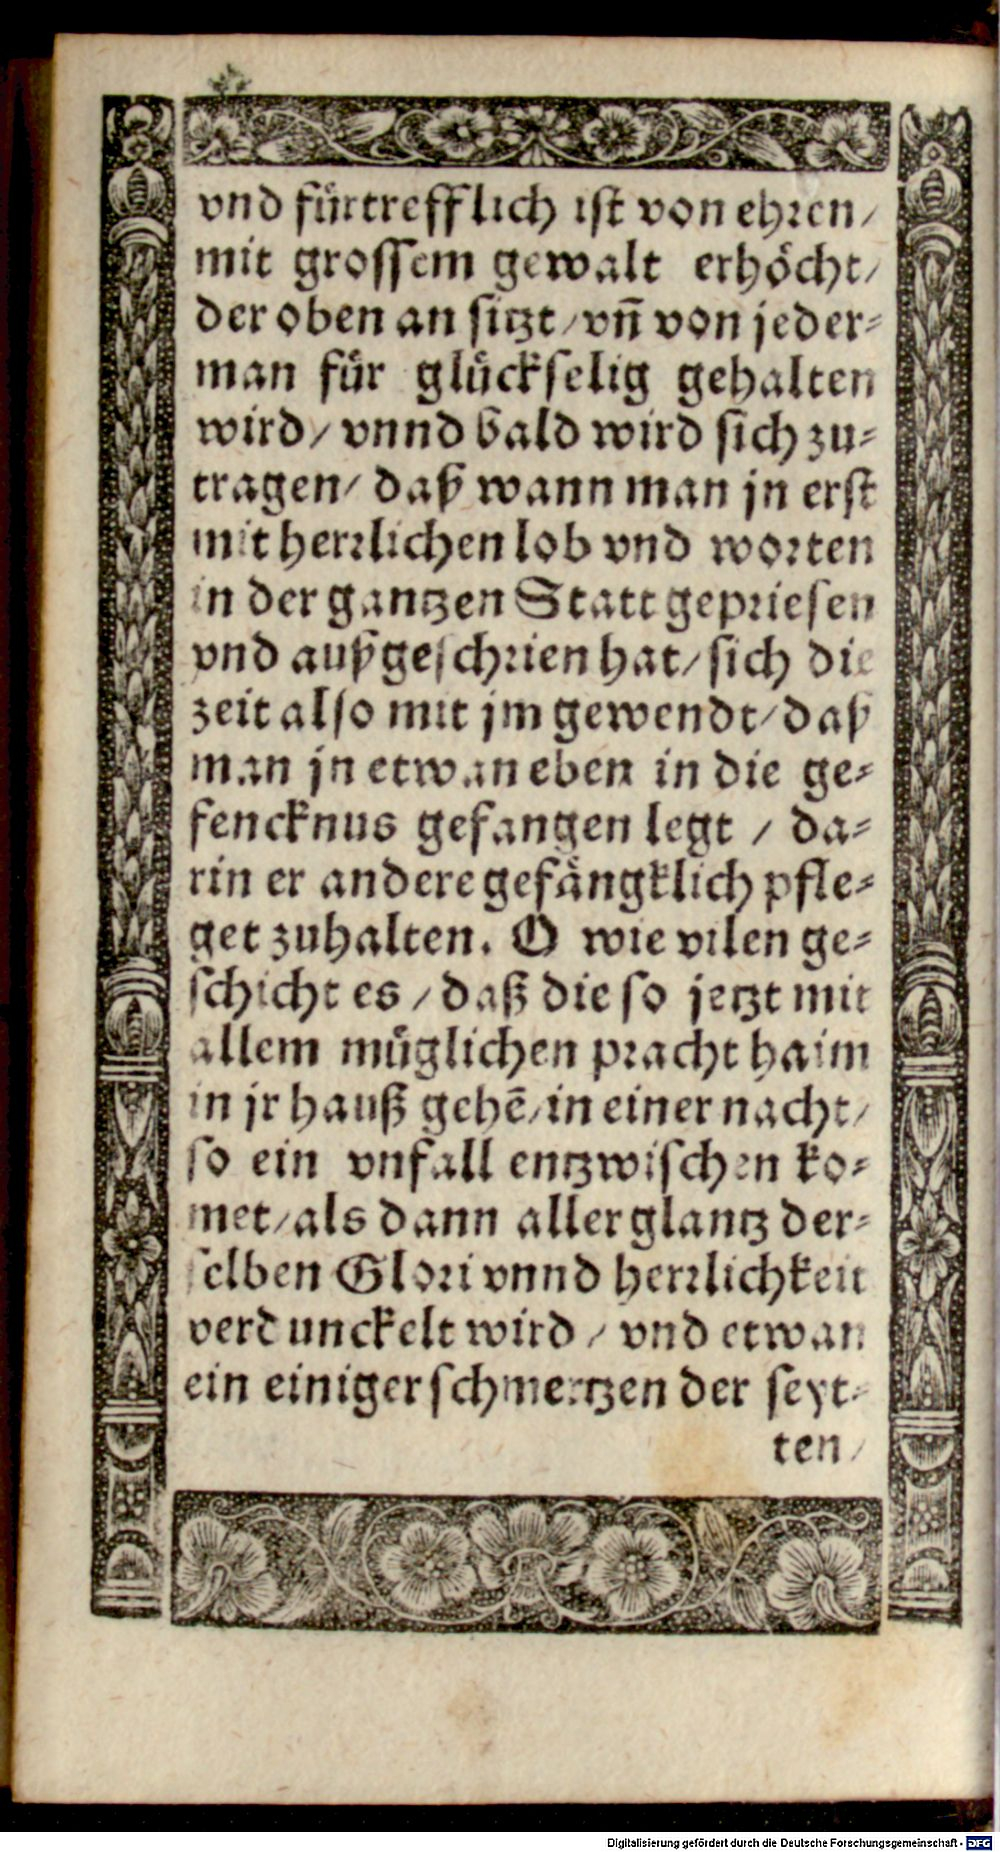 vnd fürtrefflich ist von ehren/
mit grossem gewalt erhöcht/
der oben an sitzt/vñ von jeder⸗
man für glückselig gehalten
wird/ vnnd bald wird sich zu⸗
tragen/ daß wann man jn erst
mit herrlichen lob vnd worten
in der gantzen Statt gepriesen
vnd außgeschrien hat/ sich die
zeit also mit jm gewendt/daß
man jn etwan eben in die ge⸗
fencknus gefangen legt / da⸗
rin er andere gefängklich pfle⸗
get zuhalten. O wie vilen ge⸗
schicht es / daß die so jetzt mit
allem müglichen pracht haim
in jr hauß gehē/in einer nacht/
so ein vnfall entzwischen ko⸗
met/als dann aller glantz der⸗
selben Glori vnnd herrlichkeit
verdunckelt wird / vnd etwan
ein einiger schmertzen der seyt⸗
ten/
Digitalisierung gefördert durch die Deutsche Forschungsgemeinschaft - DFG